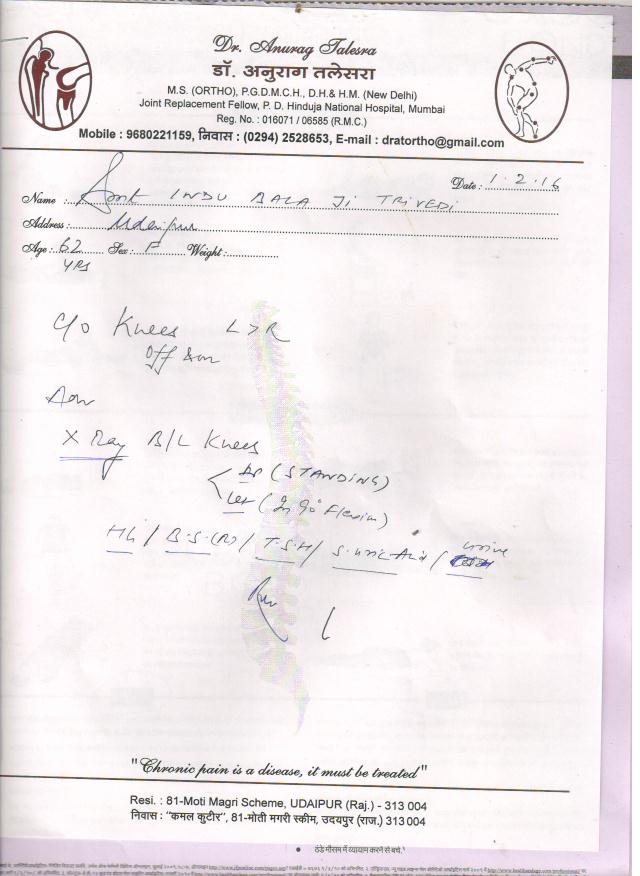 Dr. Anurag Talesra
डॉ. अनुराग तलेसरा
M.S. (ORTHO), P.G.D.M.C.H., D.H.& H.M. (New Delhi)
Joint Replacement Fellow, P. D. Hinduja National Hospital, Mumbai
Reg. No. : 016071 / 06585 (R.M.C.)
Mobile : 9680221159, निवास : (0294) 2528653, E-mail : dratortho@gmail.com
Date : 1.2.16
Name : Smt INDU BALA Ji TRIVEDI
Address : Udaipur
Age : 62 YRS Sex : F Weight :
C/o Knees L>R
Off & on
Adv
X Ray B/L Knees
AP (STANDING)
Lat (In 90° Flexion)
Hb / B.S.(R) / T.S.H / S. Uric Acid / urine
"Chronic pain is a disease, it must be treated"
Resi. : 81-Moti Magri Scheme, UDAIPUR (Raj.) - 313 004
निवास : "कमल कुटीर", 81-मोती मगरी स्कीम, उदयपुर (राज.) 313 004
ठंडे मौसम में व्यायाम करने से बचें.